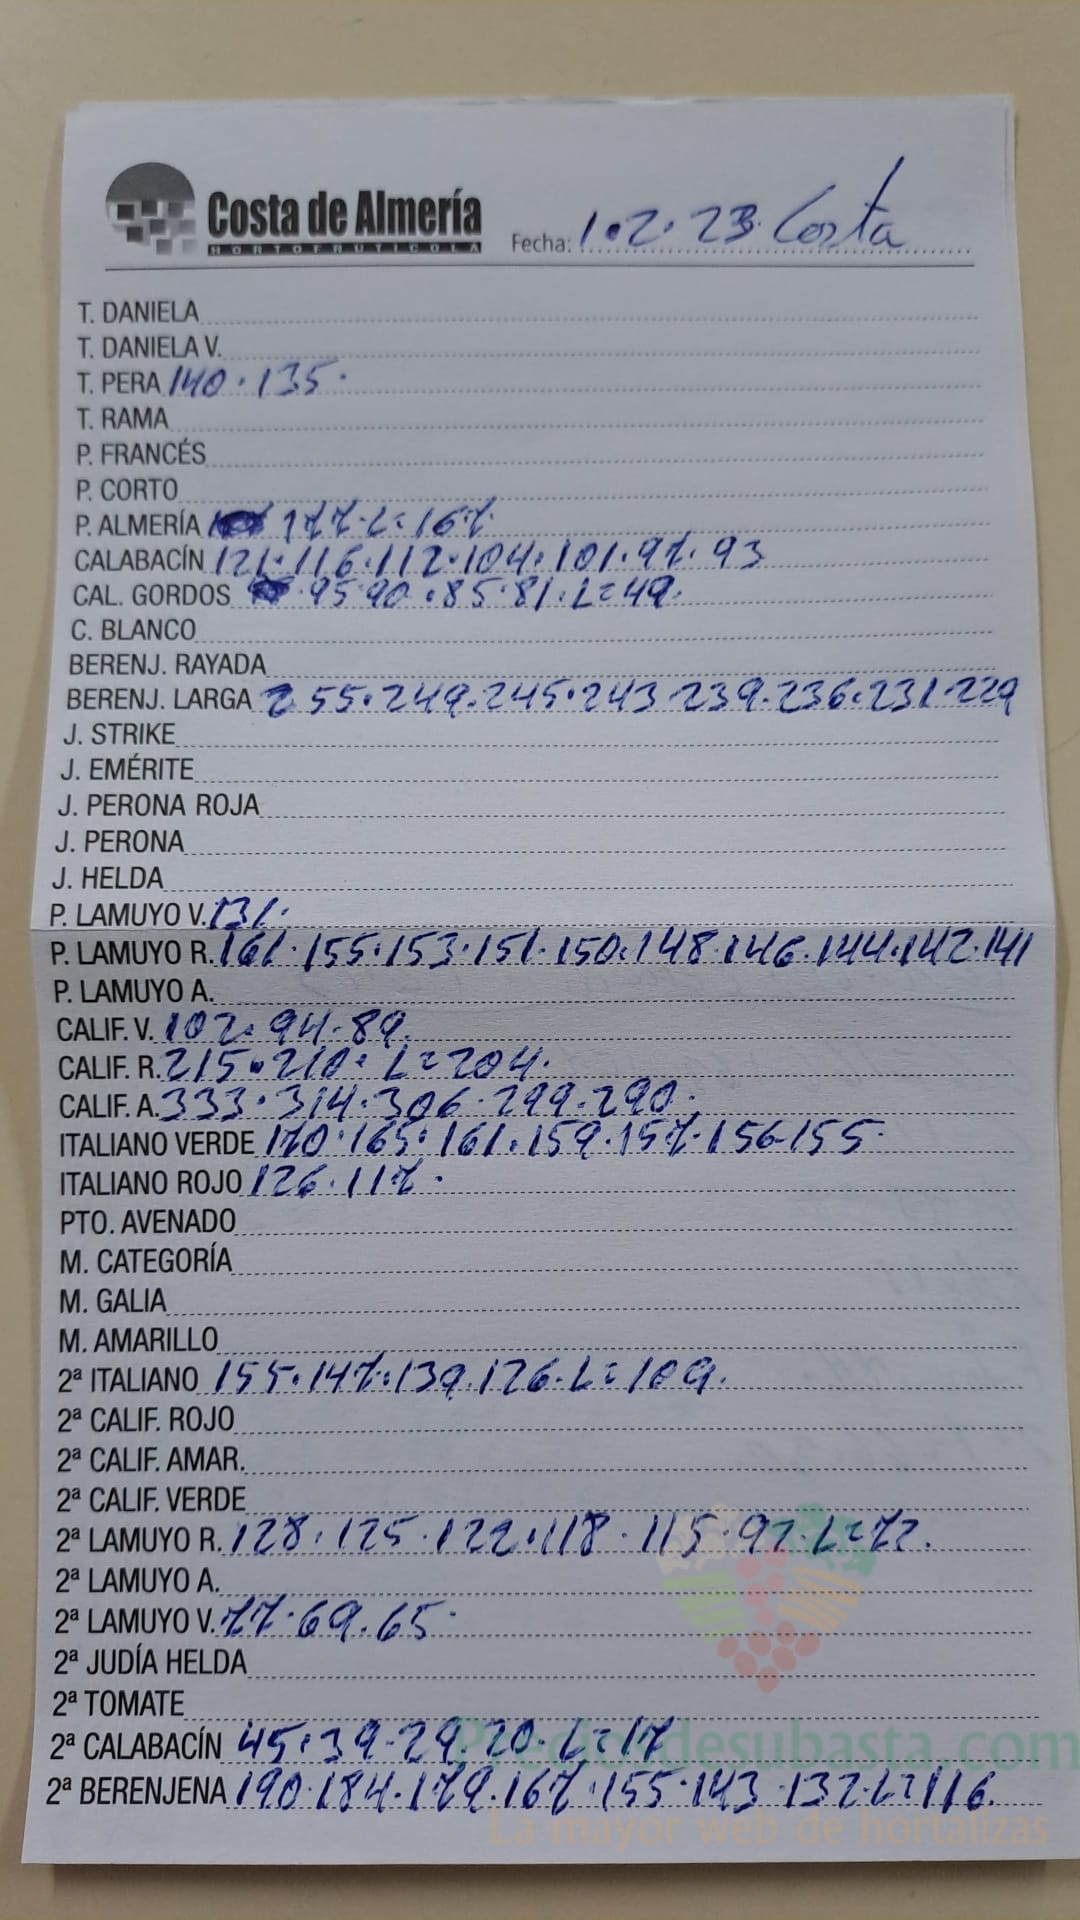 Costa de Almería
HORTOFRUTICOLA
Fecha: 1.2.23. Costa
T. DANIELA
T. DANIELA V.
T. PERA 140.135.
T. RAMA
P. FRANCÉS
P. CORTO
P. ALMERÍA 177.L=167.
CALABACÍN 121.116.112.104.101.97.93
CAL. GORDOS 95.90.85.81.L=49.
C. BLANCO
BERENJ. RAYADA
BERENJ. LARGA 255.249.245.243.239.236.231.229
J. STRIKE
J. EMÉRITE
J. PERONA ROJA
J. PERONA
J. HELDA
P. LAMUYO V. 131.
P. LAMUYO R. 161.155.153.151.150.148.146.144.142.141
P. LAMUYO A.
CALIF. V. 102.94.89.
CALIF. R. 215.210.L=204.
CALIF. A. 333.314.306.299.290.
ITALIANO VERDE 170.165.161.159.157.156.155.
ITALIANO ROJO 126.117.
PTO. AVENADO
M. CATEGORÍA
M. GALIA
M. AMARILLO
2ª ITALIANO 155.147.139.126.L=109.
2ª CALIF. ROJO
2ª CALIF. AMAR.
2ª CALIF. VERDE
2ª LAMUYO R. 128.125.122.118.115.92.L=72.
2ª LAMUYO A.
2ª LAMUYO V. 77.69.65.
2ª JUDÍA HELDA
2ª TOMATE
2ª CALABACÍN 45.39.29.20.L=17
2ª BERENJENA 190.184.179.167.155.143.132.L=116.
Preciosdesubasta.com
La mayor web de hortalizas